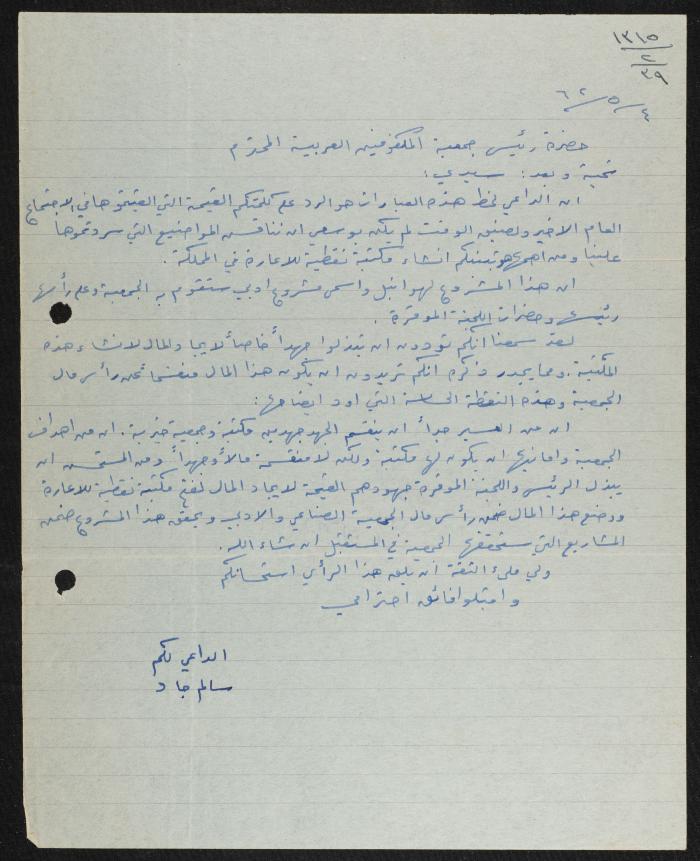 ١٣١٥
٢
٣٩
٤/٥/٦٢
حضرة رئيس جمعية المكفوفين العربية المحترم
تحية وبعد: سيدي:
ان الداعي لخط هذه العبارات هو الرد على كلمتكم القيمة التي القيتموها في الاجتماع
العام الاخير ولضيق الوقت لم يكن بوسعي ان نناقش المواضيع التي سردتموها
علينا ومن اهمها هو تبنيكم انشاء مكتبة نقطية للاعارة في المملكة.
ان هذا المشروع لهو انبل واسمى مشروع ادبي ستقوم به الجمعية وعلى رأسها
رئيسها وحضرات اللجنة الموقرة.
لقد سمعنا انكم تودون ان تبذلوا جهداً خاصاً لايجاد المال لانشاء هذه
المكتبة. ومما يجدر ذكره انكم تريدون ان يكون هذا المال منقسما عن رأس مال
الجمعية وهذه النقطة الحساسة التي اود ايضاحها:
ان من العسير جداً ان ينقسم الجهد بين مكتبة وجمعية خيرية. ان من اهداف
الجمعية وامانيها ان يكون لها مكتبة ولكن لا منقسمة مالاً وجهداً ومن المستحسن ان
يبذل الرئيس واللجنة الموقرة جهودهم القيمة لايجاد المال لفتح مكتبة نقطية للاعارة
ووضع هذا المال ضمن رأس مال الجمعية الصناعي والادبي ويحقق هذا المشروع ضمن
المشاريع التي ستحققها الجمعية في المستقبل ان شاء الله.
ولي ملىء الثقة ان يلق هذا الرأي استحسانكم
واقبلوا فائق احترامي
الداعي لكم
سالم جاد